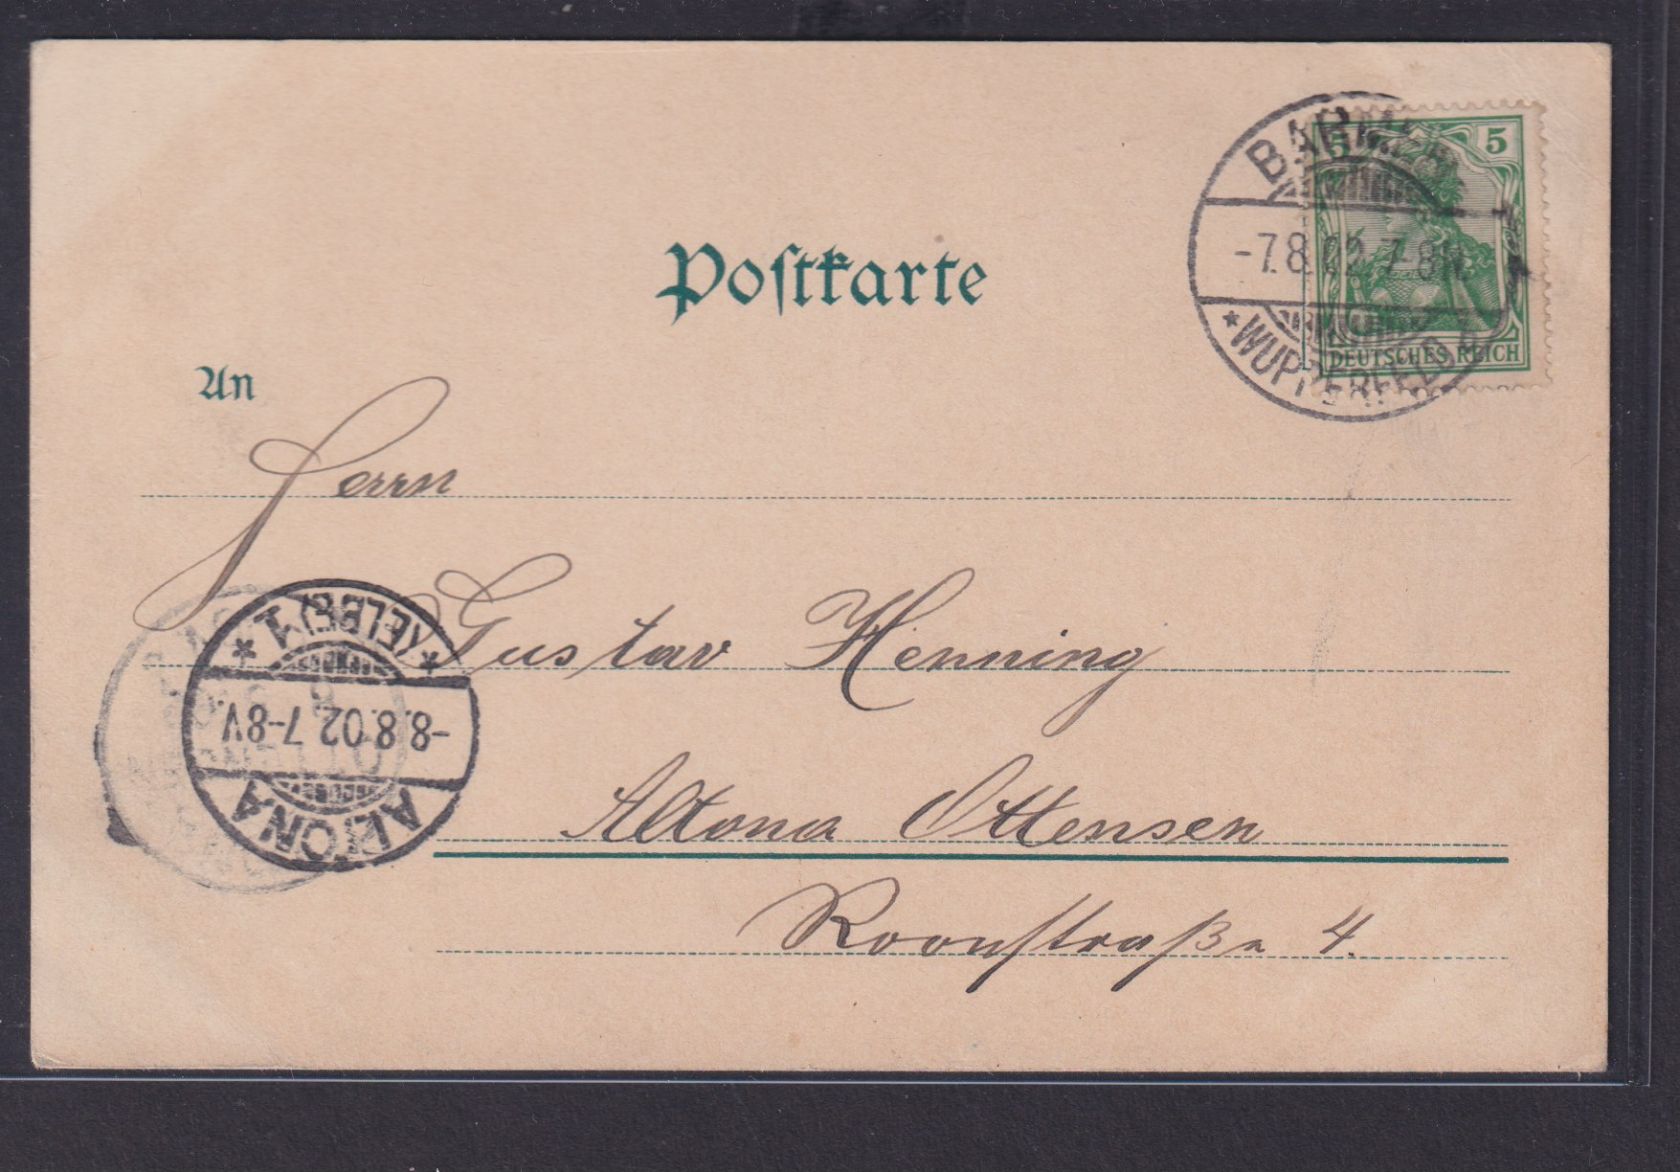 BARMEN
-7.8.02.7-8N.
*WUPPERFELD
5
DEUTSCHES REICH
Postkarte
An
Herrn
Gustav Henning
Altona Ottensen
Roonstraße 4.
ALTONA
-8.8.02 7-8V.
*(ELBE)1*